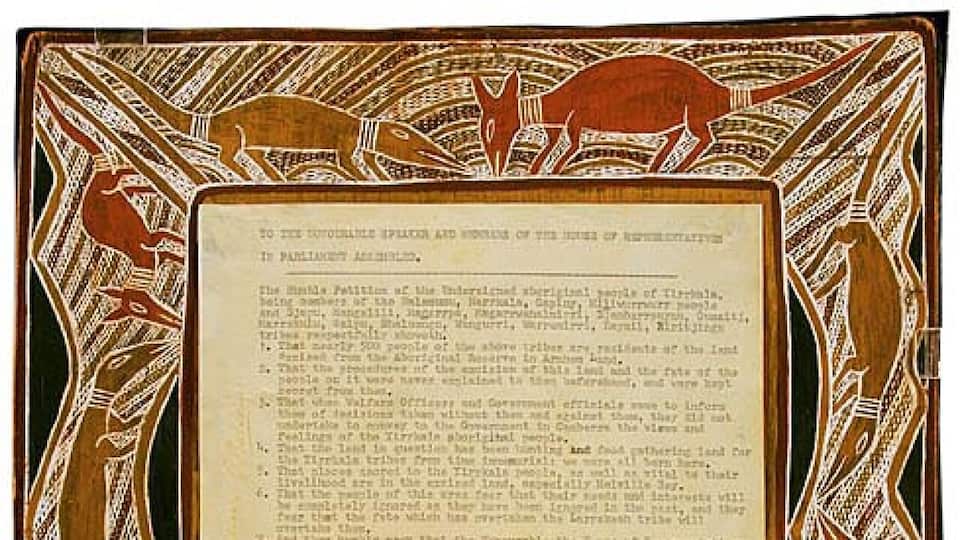 TO THE HONOURABLE SPEAKER AND MEMBERS OF THE HOUSE OF REPRESENTATIVES
IN PARLIAMENT ASSEMBLED.
The Humble Petition of the Undersigned aboriginal people of Yirrkala,
being members of the Balamumu, Narrkala, Gapiny, people
and Djapu, Mangalili, Madarrpa, Djambarrpuynu, Gumaitj,
Marrakulu, Galpu, Wangurri, Warramirri,
tribes respectfully showeth.
1. That nearly 500 people of the above tribes are residents of the land
excised from the Aboriginal Reserve in Arnhem Land.
2. That the procedures of the excision of this land and the fate of the
people on it were never explained to them beforehand, and were kept
secret from them.
3. That when Welfare Officers and Government officials came to inform
them of decisions taken without them and against them, they did not
undertake to convey to the Government in Canberra the views and
feelings of the Yirrkala aboriginal people.
4. That the land in question has been hunting and food gathering land for
the Yirrkala tribes from time immemorial; we were all born here.
5. That places sacred to the Yirrkala people, as well as vital to their
livelihood are in the excised land, especially Melville Bay.
6. That the people of this area fear that their needs and interests will
be completely ignored as they have been ignored in the past, and they
fear that the fate which has overtaken the Larrakeah tribe will
overtake them.
7. And